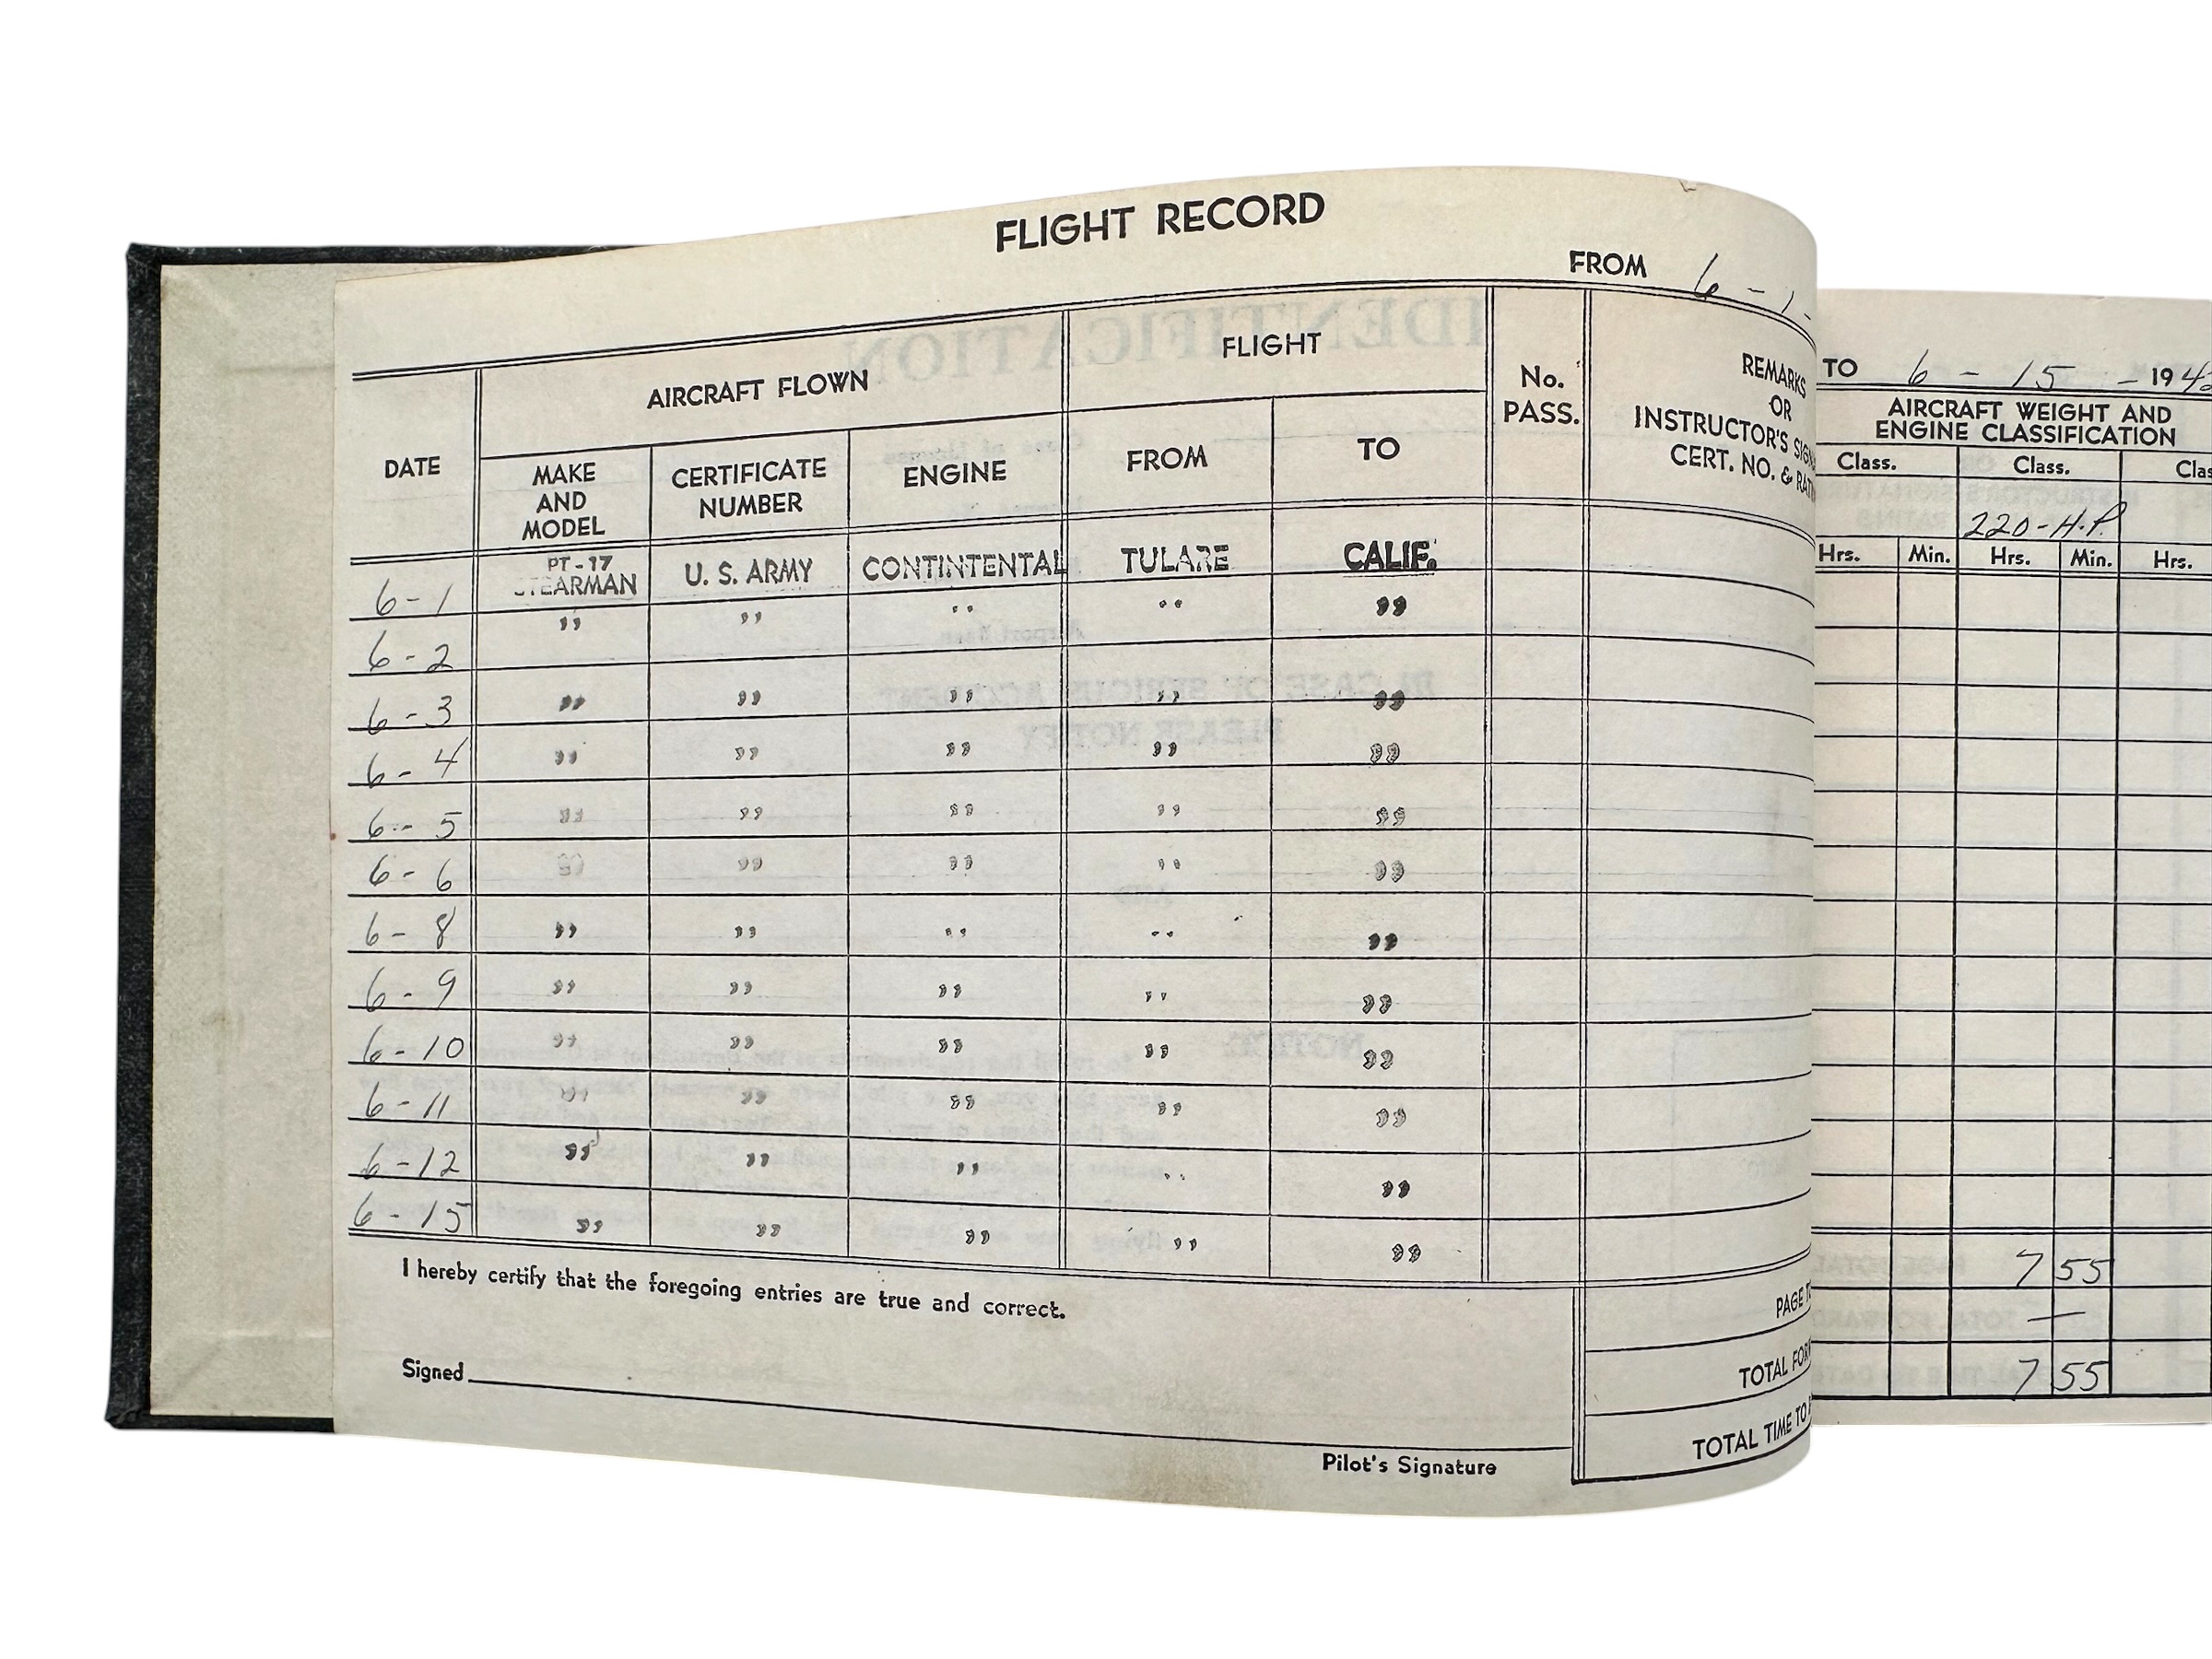 FLIGHT RECORD
FROM 6 - 1 -
TO 6 - 15 - 194
DATE
AIRCRAFT FLOWN
FLIGHT
No. PASS.
REMARKS
OR
INSTRUCTOR'S
CERT. NO. &
AIRCRAFT WEIGHT AND
ENGINE CLASSIFICATION
MAKE AND MODEL
CERTIFICATE NUMBER
ENGINE
FROM
TO
Class.
Class.
220-H.P.
Hrs. Min. Hrs. Min. Hrs.
6-1 PT-17 STEARMAN U. S. ARMY CONTINTENTAL TULARE CALIF.
6-2 " " " " "
6-3 " " " " "
6-4 " " " " "
6-5 " " " " "
6-6 " " " " "
6-8 " " " " "
6-9 " " " " "
6-10 " " " " "
6-11 " " " " "
6-12 " " " " "
6-15 " " " " "
I hereby certify that the foregoing entries are true and correct.
Signed
Pilot's Signature
PAGE 7 55
TOTAL —
TOTAL TIME TO 7 55